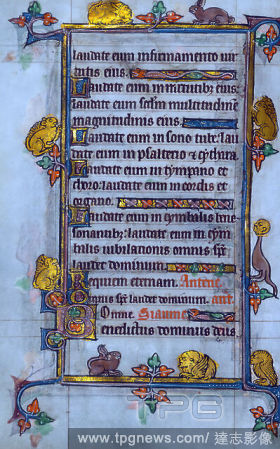 laudate eum in firmamento uir
tutis eius.
Laudate eum in uirtutibus eius:
laudate eum scdm multitudinē
magnitudinis eius.
Laudate eum in sono tube: lau
date eum in psalterio & cythara.
Laudate eum in tympano et
choro: laudate eum in cordis et
organo.
Laudate eum in cymbalis bene
sonantibȝ: laudate eum in cym
balis iubilationis omnis spē
laudet dominum.
Requiem eternam. Anteut.
Omnis spē laudet dominum. ant.
Omne.
Benedictus dominus deus
PG
www.tpgnews.com/ 達志影像